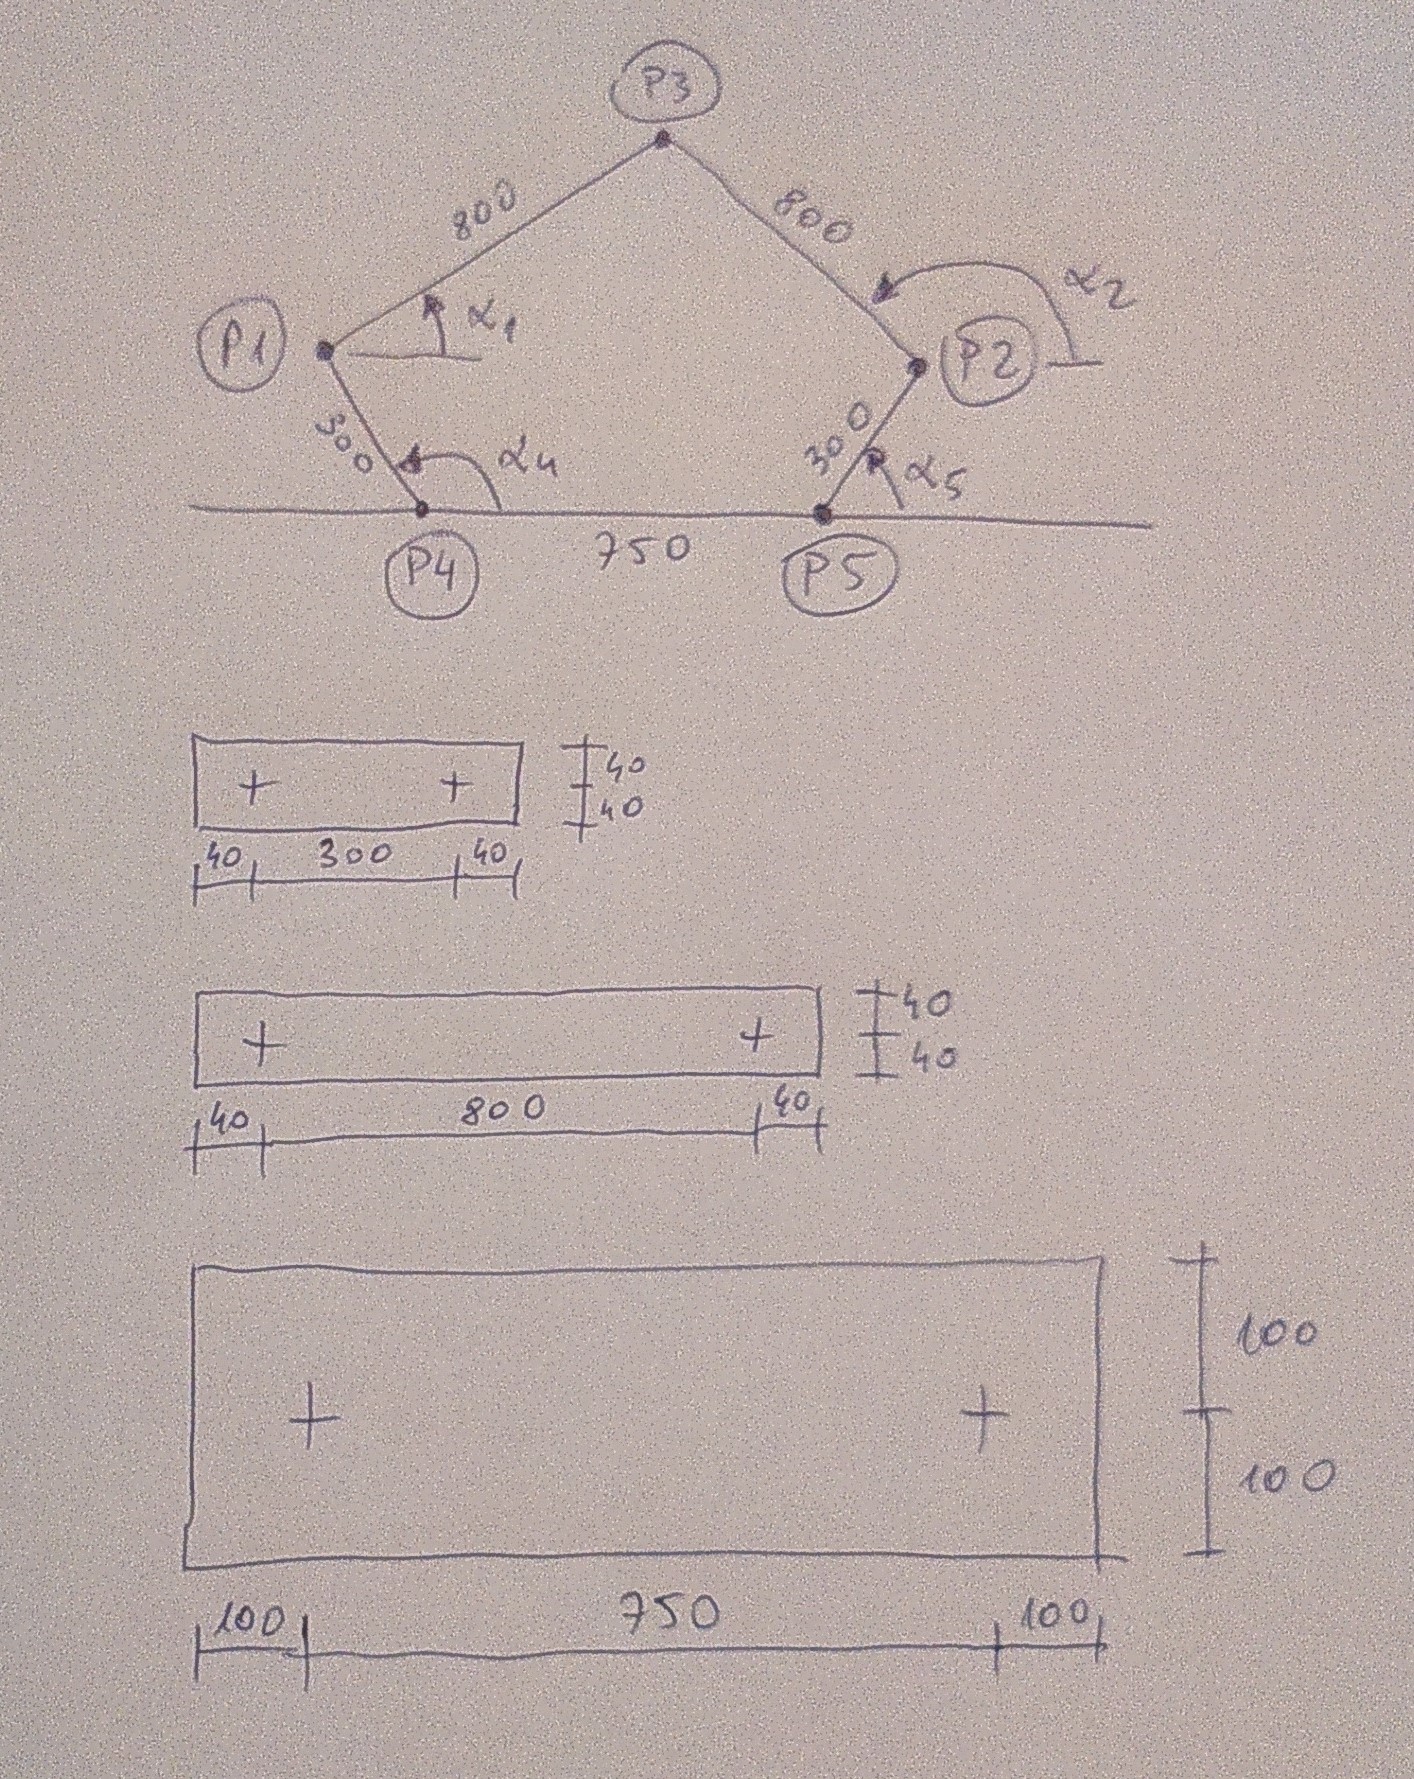 P3
800
800
α2
P1
α1
P2
300
α4
300
α5
750
P4
P5
40
40
40 300 40
40
40
40 800 40
100
100
100 750 100